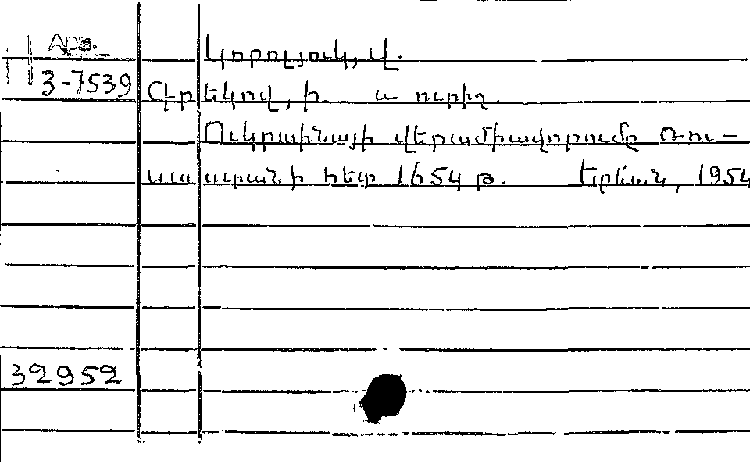 Арм.
Կորոլյուկ, Վ.
3-7539
Շիրեկով, Ի. և ուրիշ.
Ուկրաինայի վերամիավորումը Ռու-
սաստանի հետ 1654 թ. Երևան, 1954
32952